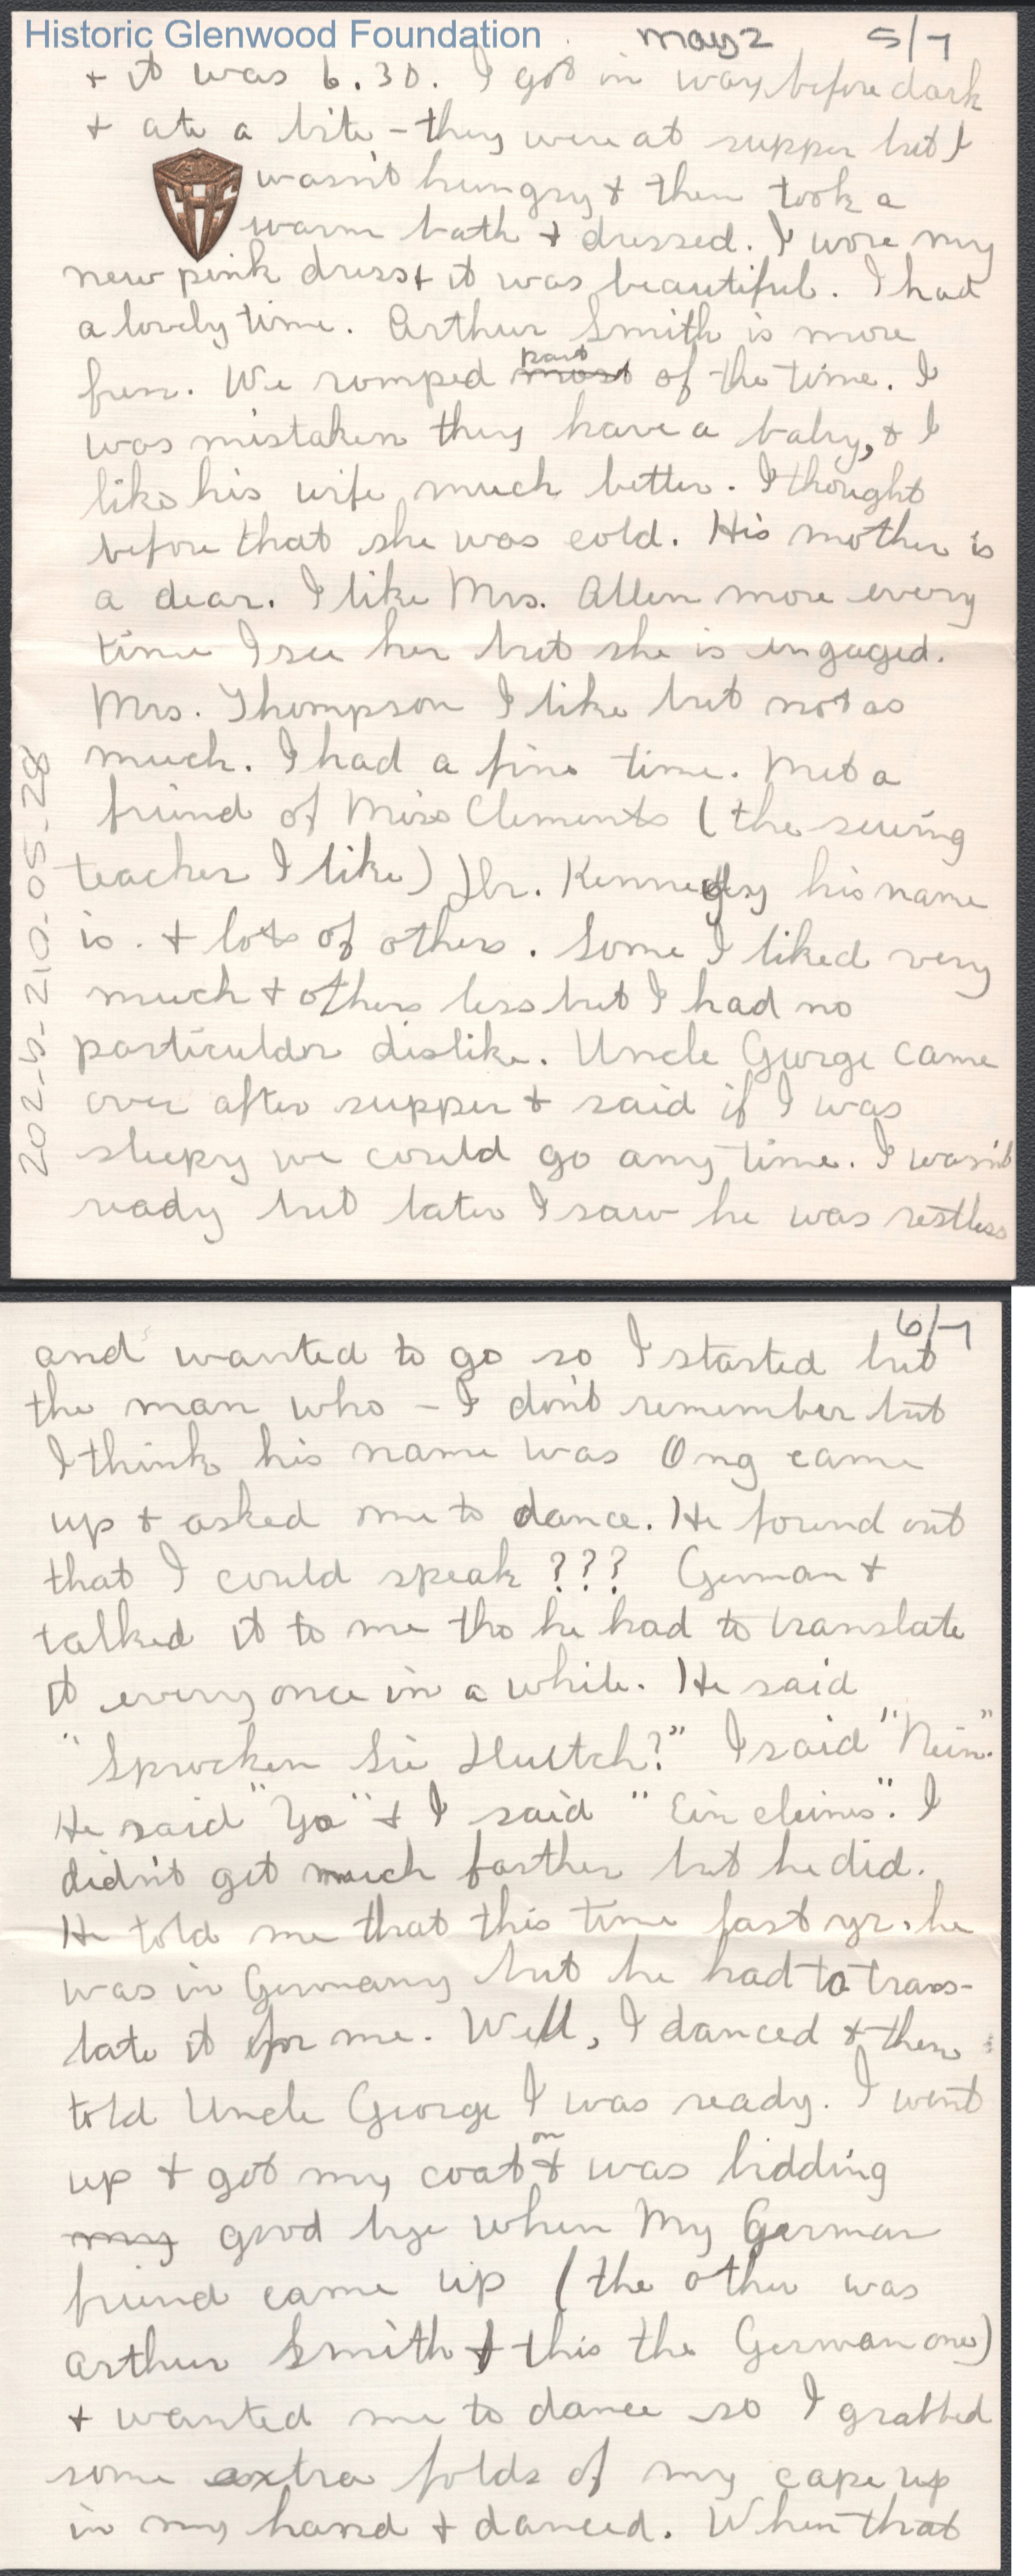 Historic Glenwood Foundation
may 2 5/7
+ it was 6.30. I got in way before dark
+ ate a bite - they were at supper but I
wasn't hungry + then took a
warm bath + dressed. I wore my
new pink dress + it was beautiful. I had
a lovely time. Arthur Smith is more
fun. We romped most part of the time. I
was mistaken they have a baby, + I
like his wife much better. I thought
before that she was cold. His mother is
a dear. I like Mrs. Allen more every
time I see her but she is engaged.
Mrs. Thompson I like but not as
much. I had a fine time. Met a
friend of Miss Clements (the sewing
teacher I like) Dr. Kennedy his name
is. + lots of others. Some I liked very
much + others less but I had no
particular dislike. Uncle George came
over after supper + said if I was
sleepy we could go any time. I wasn't
ready but later I saw he was restless
202-b-210-05-28
6/7
and wanted to go so I started but
the man who - I don't remember but
I think his name was Ong came
up + asked me to dance. He found out
that I could speak ??? German +
talked it to me tho he had to translate
it every once in a while. He said
"Sprocken Sie Deutch?" I said "Nein."
He said "Ya" + I said "Ein cleines". I
didn't get much farther but he did.
He told me that this time last yr. he
was in Germany but he had to trans-
late it for me. Well, I danced + then
told Uncle George I was ready. I went
up + got my coat on + was bidding
my good bye when My German
friend came up (the other was
Arthur Smith + this the German one)
+ wanted me to dance so I grabbed
some extra folds of my cape up
in my hand + danced. When that